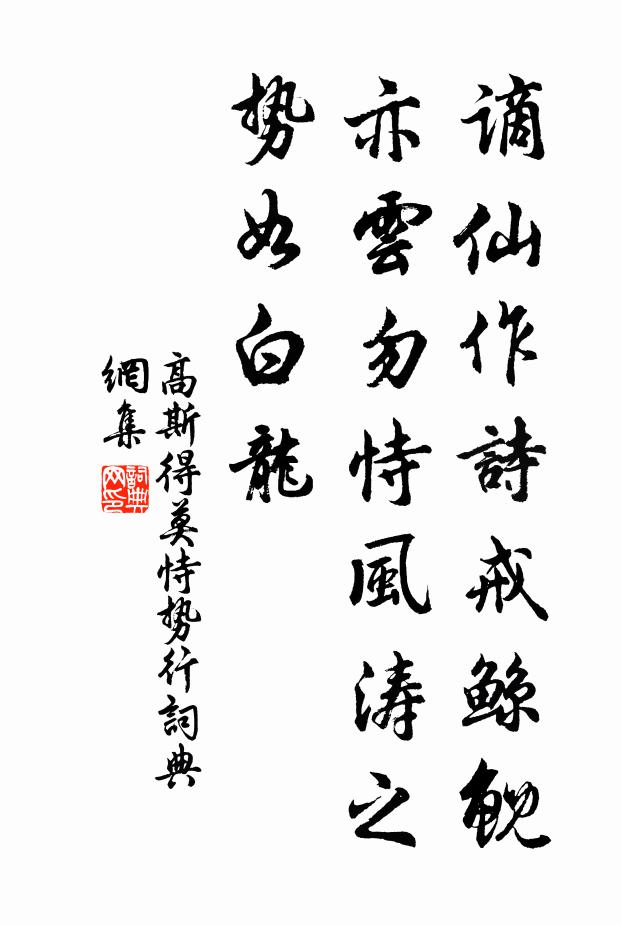 謫仙作詩戒鯨鯢
亦雲勿恃風濤之
勢如白龍
高斯得莫恃勢行詞典
網集
詞典網印